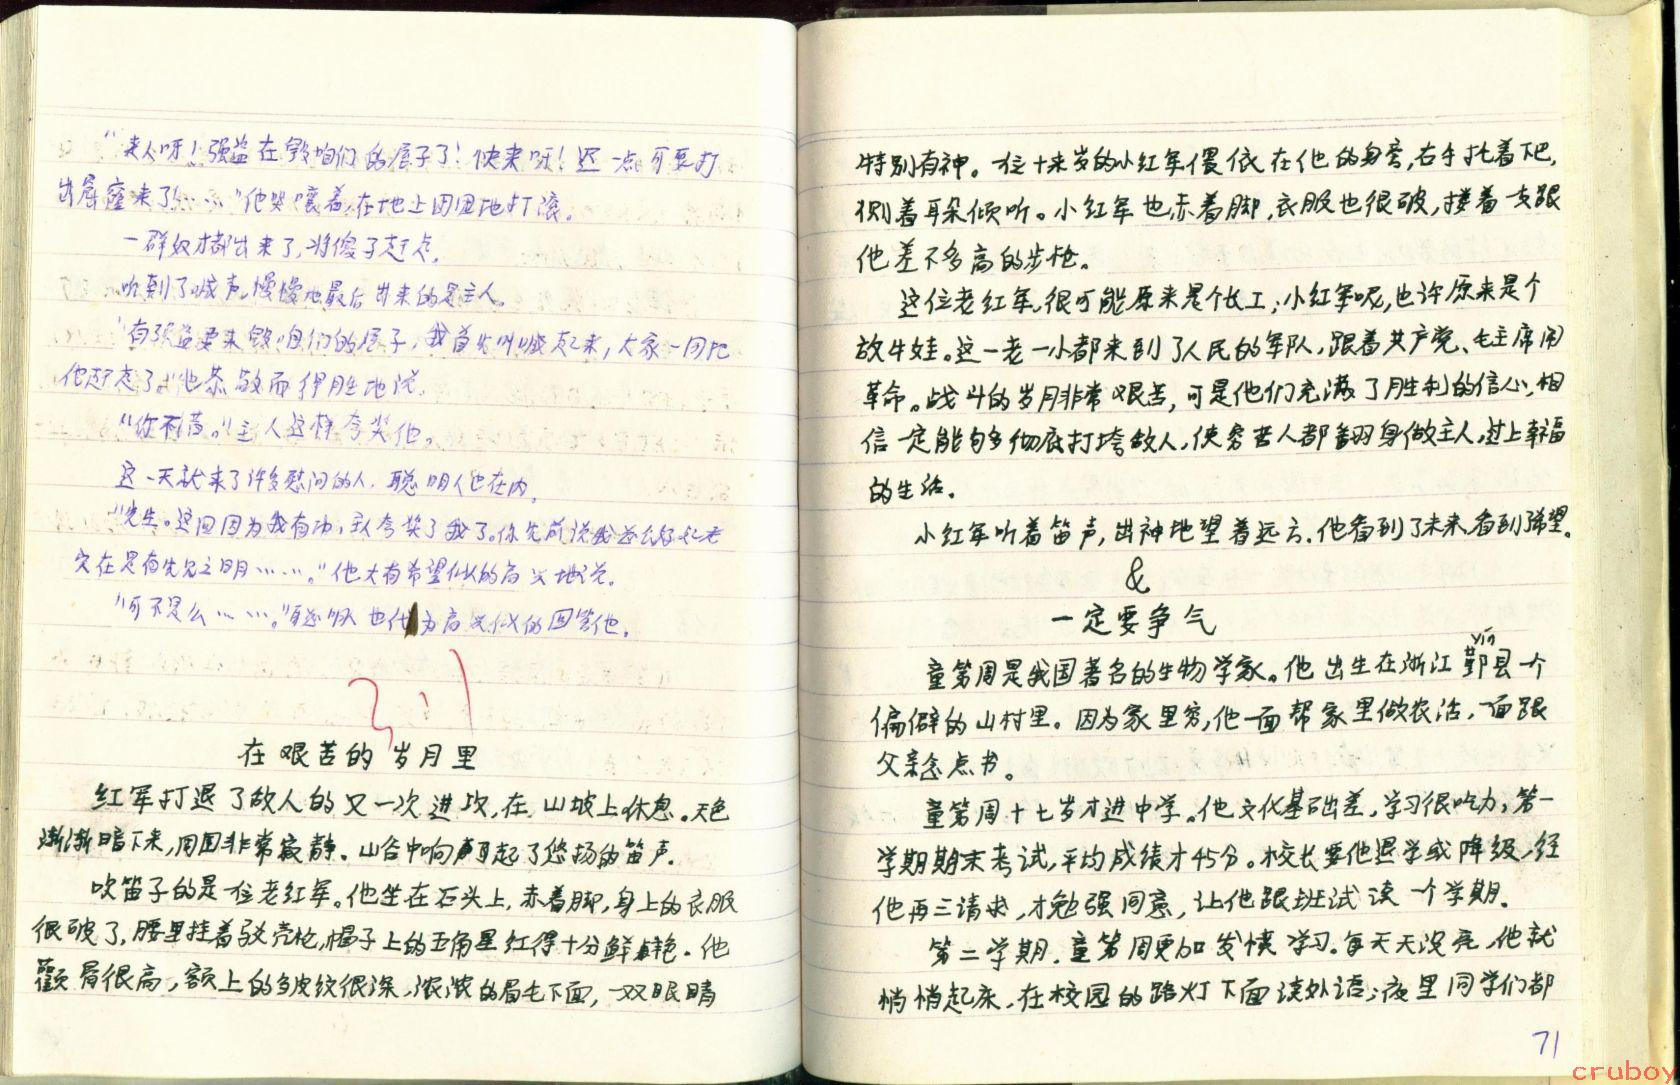 “来人呀！强盗在毁咱们的屋子了！快来呀！迟一点可要打
出窟窿来了！……”他哭嚷着，在地上团团地打滚。
一群奴才都出来了，将傻子赶走。
听到了喊声，慢慢地最后出来的是主人。
“有强盗要来毁咱们的屋子，我首先叫喊起来，大家一同把
他赶走了。”他恭敬而得胜地说。
“你不错。”主人这样夸奖他。
这一天就来了许多慰问的人，聪明人也在内。
“先生。这回因为我有功，主人夸奖了我了。你先前说我总会好起来
实在是有先见之明……。”他大有希望似的高兴地说。
“可不是么……。”聪明人也代为高兴似的回答他。
在艰苦的岁月里
红军打退了敌人的又一次进攻，在山坡上休息。天色
渐渐暗下来，周围非常寂静。山谷中响起了悠扬的笛声。
吹笛子的是一位老红军。他坐在石头上，赤着脚，身上的衣服
很破了，腰里挂着驳壳枪，帽子上的五角星红得十分鲜艳。他
颧骨很高，额上的皱纹很深，浓浓的眉毛下面，一双眼睛
特别有神。一位十来岁的小红军偎依在他的身旁，右手托着下巴，
侧着耳朵倾听。小红军也赤着脚，衣服也很破，搂着一支跟
他差不多高的步枪。
这位老红军，很可能原来是个长工；小红军呢，也许原来是个
放牛娃。这一老一小都来到了人民的军队，跟着共产党、毛主席闹
革命。战斗的岁月非常艰苦，可是他们充满了胜利的信心，相
信一定能够彻底打垮敌人，使穷苦人都翻身做主人，过上幸福
的生活。
小红军听着笛声，出神地望着远方。他看到了未来，看到了希望。
&
一定要争气
yín
童第周是我国著名的生物学家。他出生在浙江鄞县一个
偏僻的山村里。因为家里穷，他一面帮家里做农活，一面跟
父亲念点书。
童第周十七岁才进中学。他文化基础差，学习很吃力，第一
学期期末考试，平均成绩才45分。校长要他退学或降级，经
他再三请求，才勉强同意，让他跟班试读一个学期。
第二学期，童第周更加发愤学习。每天天没亮，他就
悄悄起床，在校园的路灯下面读外语；夜里同学们都
71
cruboy